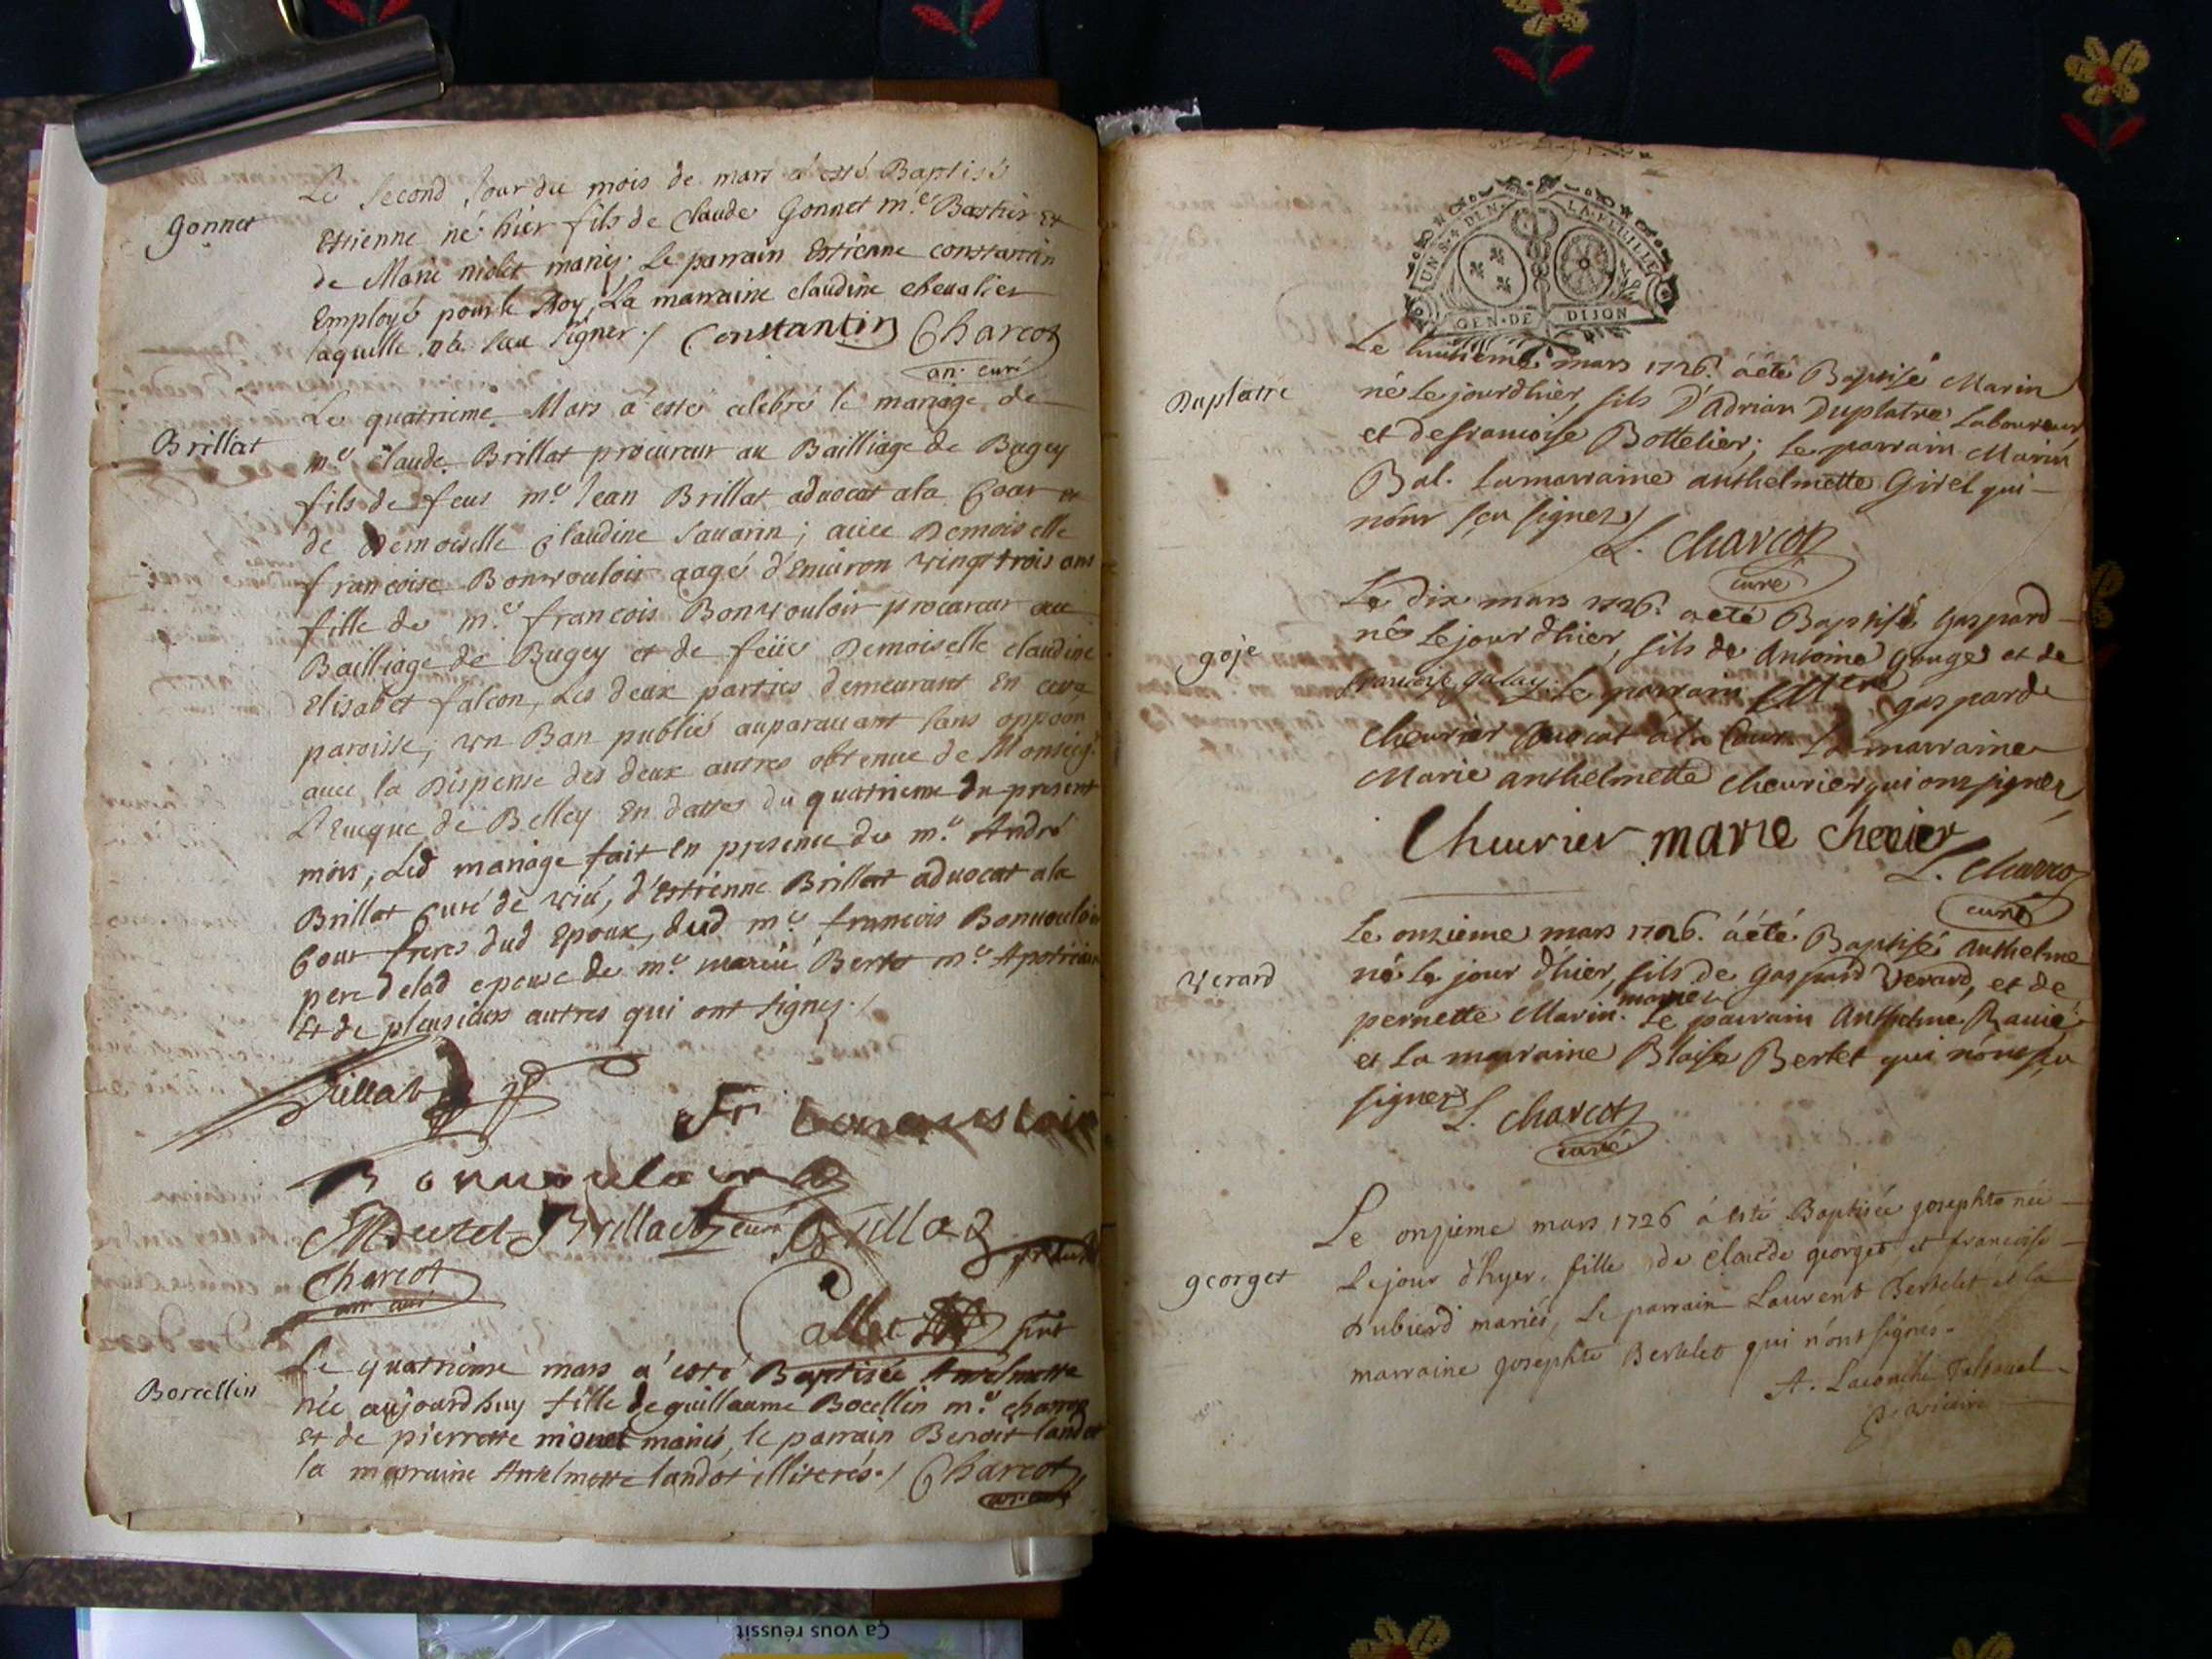 Le second Jour du mois de mars a esté Baptisé
gonnet
Estienne né hier fils de Claude Gonnet m.e Bastier Et
de Marie niolet mariés. Le parrain Estienne constantin
Employé pour le Roy, La marraine claudine cheualier
laquelle n'a sceu signer./. Constantin Charcot
an. curé
Le quatrieme Mars a esté celebré le mariage de
Brillat
m.e claude Brillat procureur au Bailliage de Bugey
fils de feus m.e Jean Brillat aduocat ala Cour et
de Demoiselle Claudine Sauarin; auec Demoiselle
francoise Bonvouloir aagé d'Enuiron vingt trois ans
fille de m.e francois Bonvouloir procureur au
Bailliage de Bugey et de feüe Demoiselle claudine
Elisabet falcon, Les deux parties demeurant En cette
paroisse; vn Ban publié auparauant sans oppoon
auec la Dispense des deux autres obtenue de Monseig.r
L'Eueque de Belley En datte du quatrieme du present
mois, Led mariage fait en presence de m.e André
Brillat Curé de viü, d'Estienne Brillat aduocat ala
Cour freres dud Epoux, dud m.e francois Bonvouloir
pere delad epouse de m.e marin Bertet m.e Apoticaire
Et de plusieurs autres qui ont signez./.
Brillat
Fr bonvouloir
Bonvouloir
MBertet Brillat curé Brillat
Charcot
an. curé
Callet
Le quatrieme mars a esté Baptisée Antelmette
Borcellin
née aujourdhuy fille de guillaume Bocellin m.e charron
Et de pierrette mouet mariés, le parrain Benoit landot
la marraine Antelmette landot illiterés./ Charcot
an. curé
UN S. 4 DEN. LA FEUILLE
GEN. DE DIJON
Le huitiéme mars 1726. a été Baptisé Marin
Duplatre
né Le jour d'hier, fils D'Adrian Duplatre Laboureur
et de francoise Bottelier; Le parrain Marin
Bal. La marraine anthelmette Girel qui
n'ont sçu signer/
L. Charcot
curé
Le dix mars 1726. a eté Baptisé gaspard
goje
né Le jour d'hier, fils de Antoine gouge et de
francoise galay. Le parrain gaspard
cheurier auocat à la Cour. La marraine
Marie anthelmette cheurier qui ont signez
Cheurier marie cheurier
L. Charcot
curé
Le onzieme mars 1726. a été Baptisé anthelme
verard
né le jour d'hier, fils de gaspard verard, et de
pernette Marin. mariez Le parrain Anthelme Rauie
et La marraine Blaise Bertet qui n'ont sçu
signer/ L. Charcot
curé
Le onzieme mars 1726 a esté Baptisée josephte née
georget
Le jour d'hyer, fille de claude georget et francoise
dubierd mariés, Le parrain Laurent Bertelet et la
marraine josephte Bertelet qui n'ont signés.
vicaire
Ça vous réussit